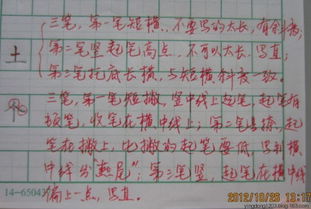 三笔，第一笔短横，不要写的太长，有斜度；
土
第二笔竖起笔高点，不可以太长，写直；
第三笔托底长横，与短横斜度一致。
三笔，第一笔短撇，竖中线上起笔，起笔有
顿笔，收笔在横中线上；第二笔
笔在撇上，比撇的起笔要低，
线分"燕尾"；第三笔竖，起笔在横中线
偏上一点，写直。
14-6504
2012/10/25 13:17
yingdong1203.blog.163.com